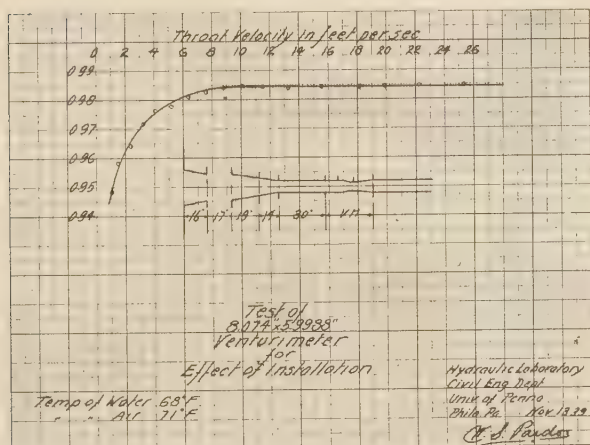 Throat Velocity in feet per sec
0 2 4 6 8 10 12 14 16 18 20 22 24 26
0.99
0.98
0.97
0.96
0.95
0.94
16" 17" 19" 14" 30" V.M.
Test of
8.074"x5.9988"
Venturimeter
for
Effect of Installation
Temp of Water 68°F
" " Air 71°F
Hydraulic Laboratory
Civil Eng Dept
Univ of Penna
Phila Pa. Nov 13.39
W. S. Pardoe